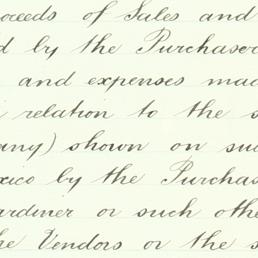 oceeds of Sales and
d by the Purchaser
and expenses mad
relation to the s
any) shown on suc
xico by the Purchas
ardiner or such othe
he Vendors or the s